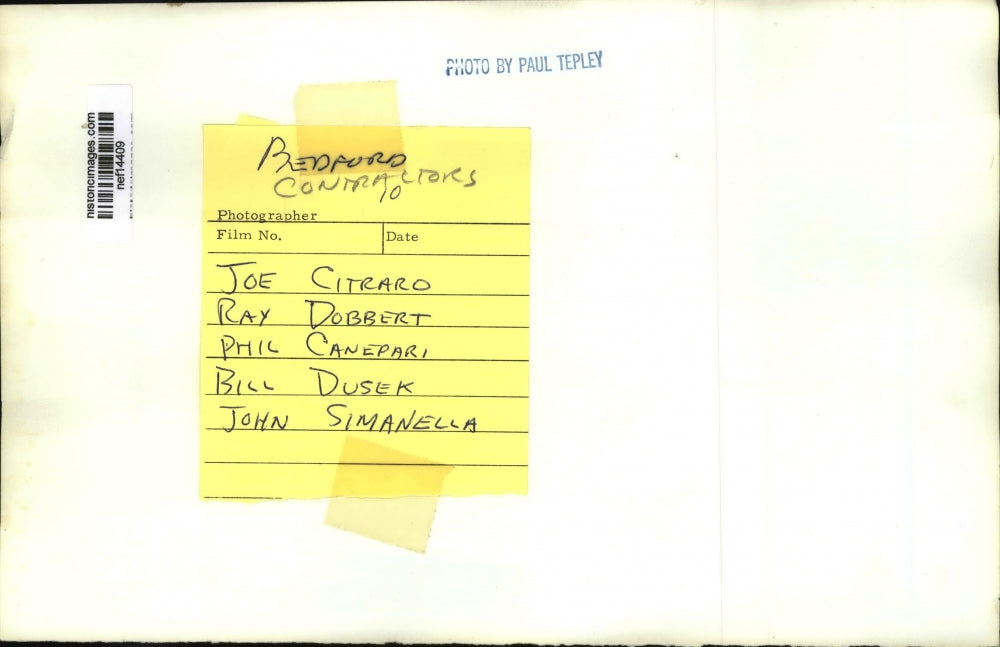 PHOTO BY PAUL TEPLEY
historicimages.com
nef14409
BEDFORD
CONTRACTORS
10
Photographer
Film No.
Date
JOE CITRARO
RAY DOBBERT
PHIL CANEPARI
BILL DUSEK
JOHN SIMANELLA